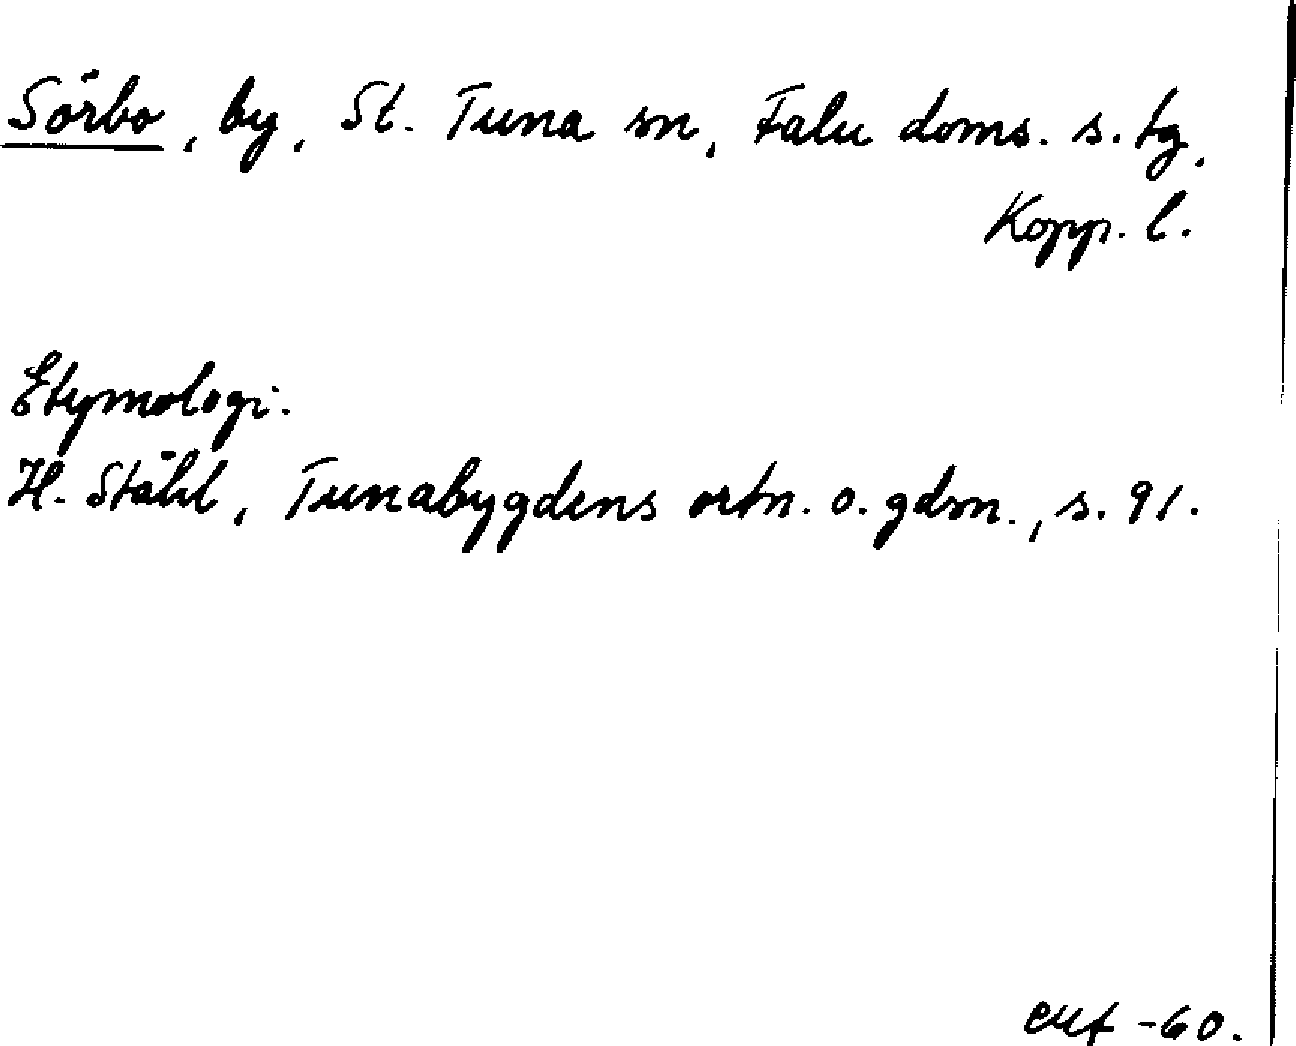 Sörbo, by, St. Tuna sn, Falu doms. s. tg.
Kopp. l.
Etymologi.
H. Ståhl, Tunabygdens ortn. o. gdsn., s. 91.
-60.